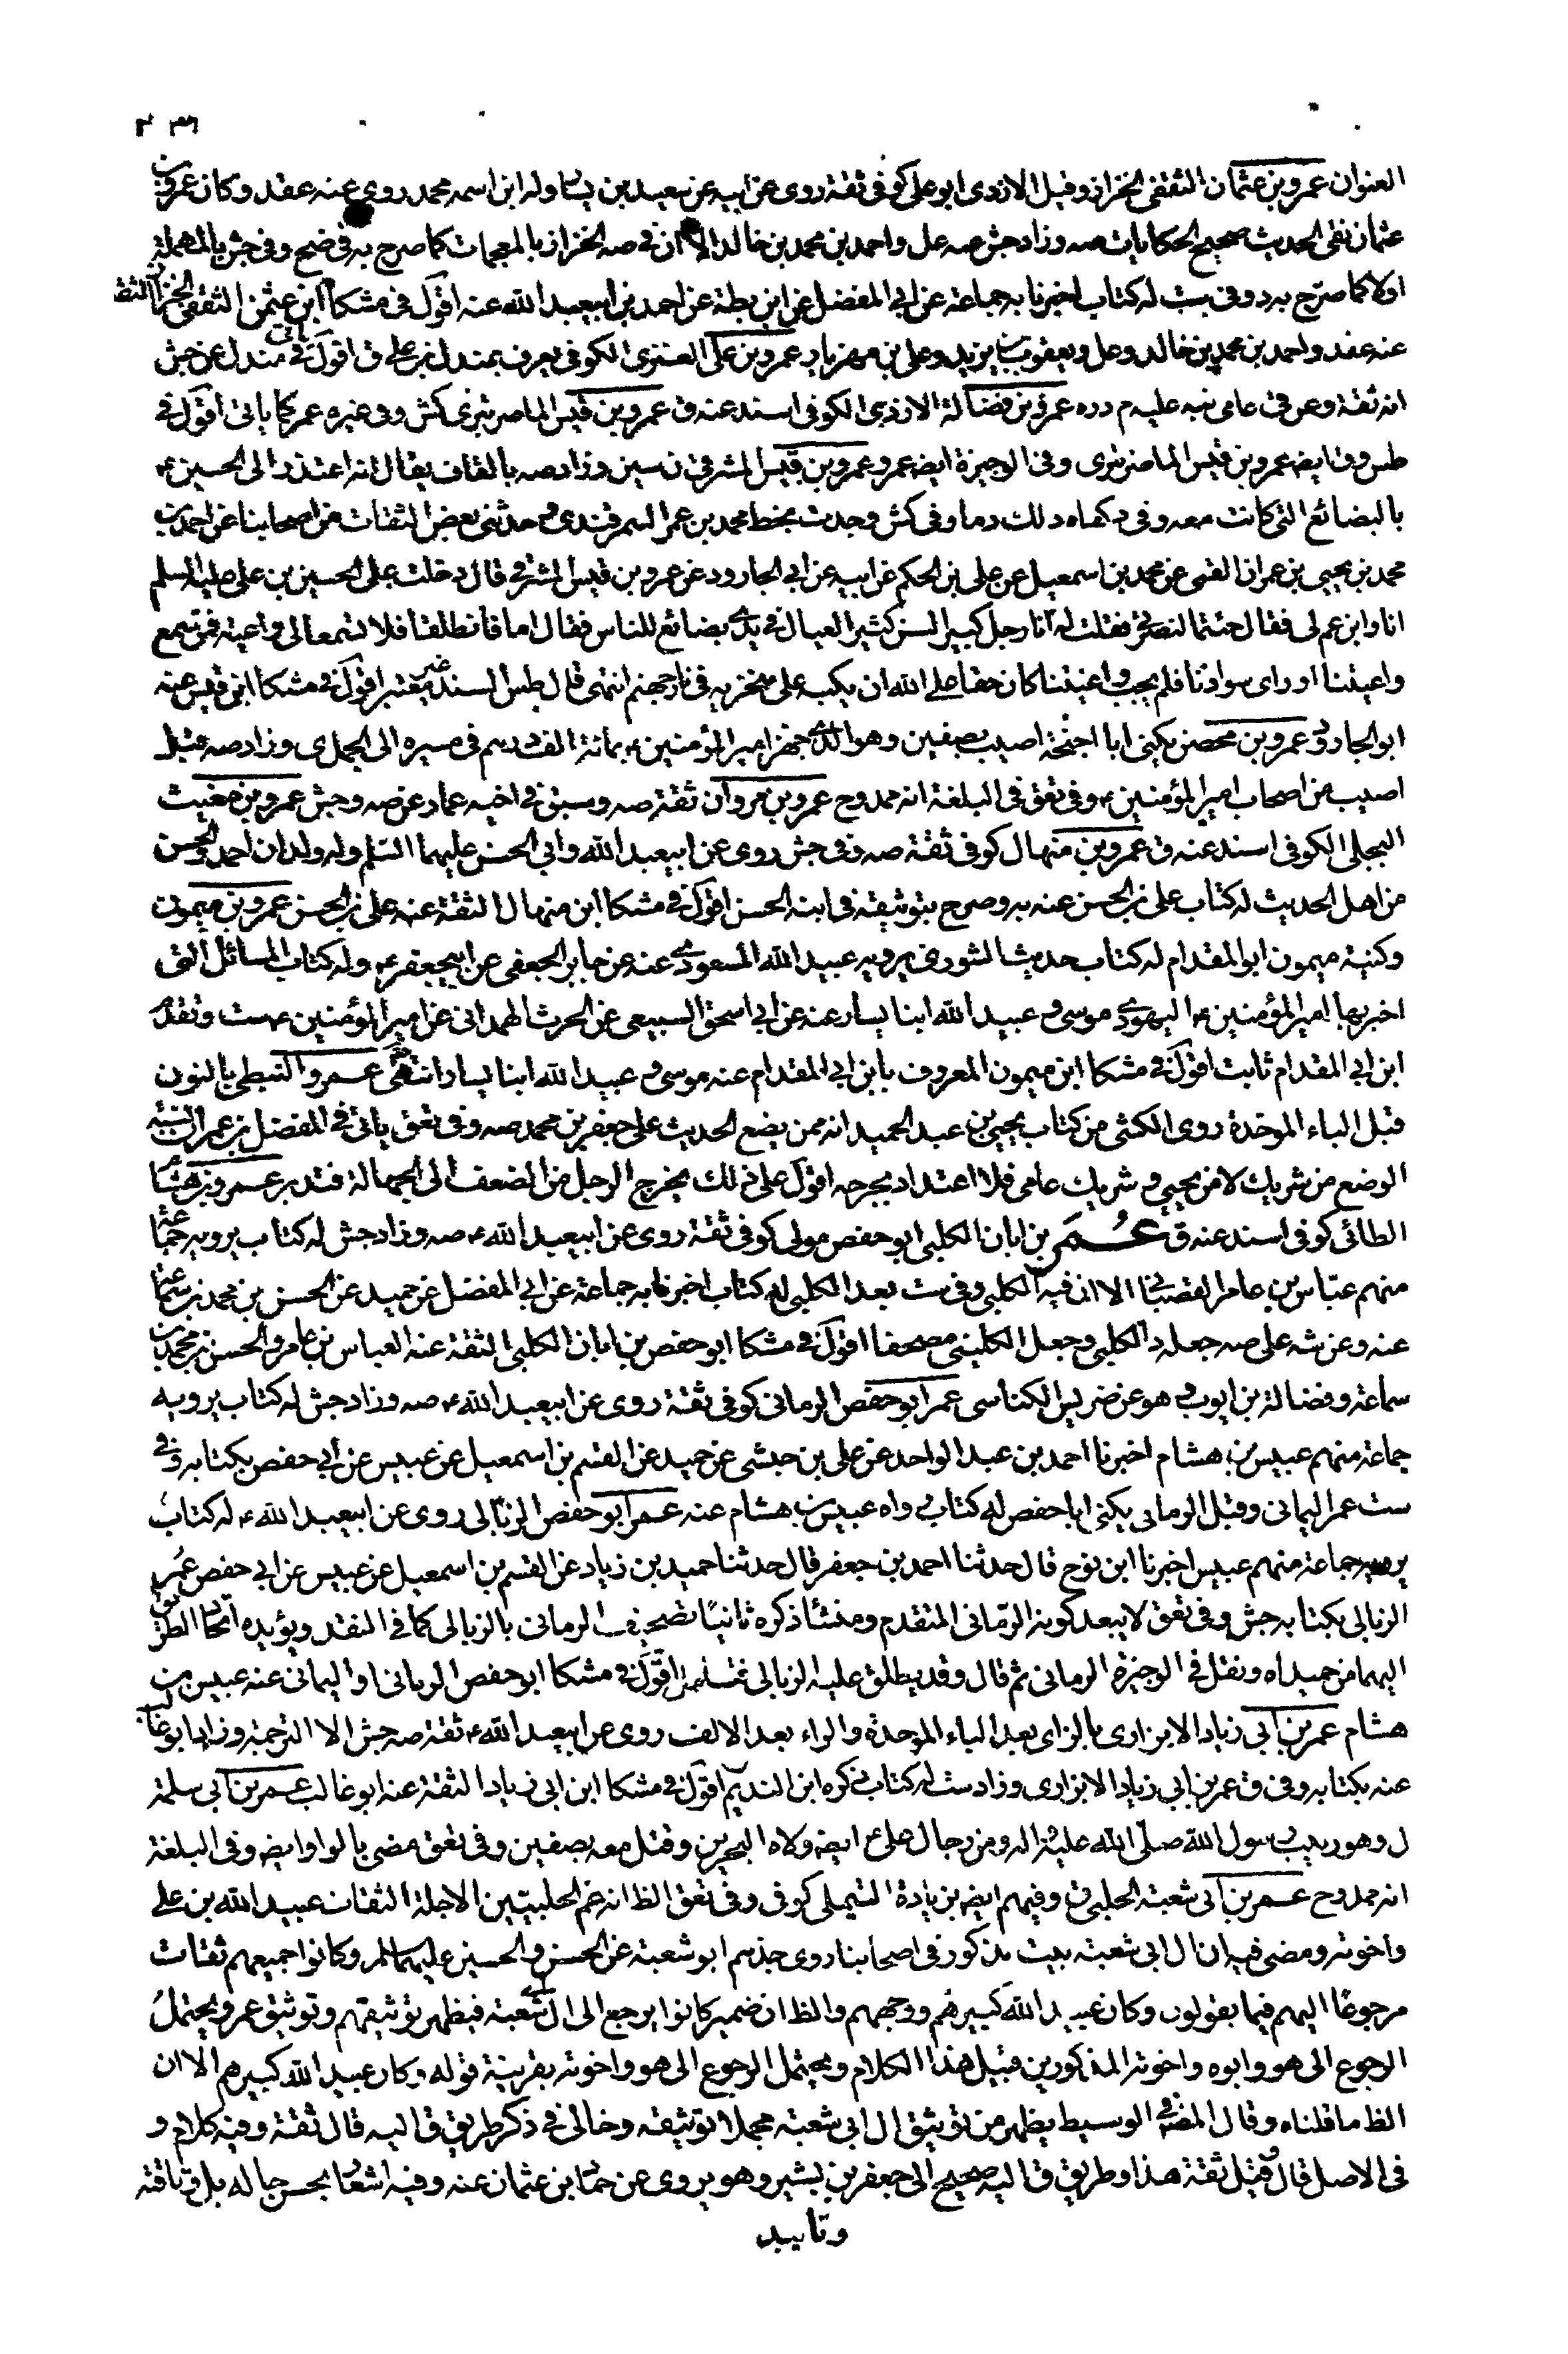 العنوان عمرو بن عثمان الثقفى الخزاز وقيل الازدى ابو على كوفى ثقة روى عن ابيه عن سعيد بن يسار وله ابن اسمه محمد روى عنه عقد وكان عمرو بن
عثمان نقى الحديث صحيح الحكايات صه وزاد جش عنه على واحمد بن محمد بن خالد الا ان فى صه الخزاز بالمعجمات كما صرح به فى ضح وفى جش بالمهملة
اولا كما صرح به د وفى ست له كتاب اخبرنا به جماعة عن ابى المفضل عن ابن بطة عن احمد بن ابيعبد الله عنه اقول فى مشكا ابن عثمن الثقفى الخزاز الثقة
عنه عقد واحمد بن محمد بن خالد وعلى ويعقوب بن يزيد وعلى بن مهزيار عمرو بن على العنزى الكوفى يعرف بمندل بن على ق اقول ياتى فى مندل عن جش
انه ثقة وعن قى عامى نبه عليه م د ره عمرو بن فضالة الازدى الكوفى اسند عنه ق عمرو بن قيس الماصر بترى كش وفى غيره عمر كما ياتى اقول فى
طس وق ايضا عمرو بن قيس الماصر بترى وفى الوجيزة ايضا عمرو عمرو بن قيس المشرقى ن سين وزاد صه بالقاف يقال انه اعتذر الى الحسين ع
بالبضائع التى كانت معه وفى د كفاه ذلك دما وفى كش وجدت بخط محمد بن عمر السمرقندى وحدثنى بعض الثقات من اصحابنا عن احمد بن
محمد بن يحيى بن عمران القمى عن محمد بن اسمعيل عن على بن الحكم عن ابيه عن ابى الجارود عن عمرو بن قيس المشرقى قال دخلت على الحسين بن على عليه السلم
انا وابن عم لى فقال جئتما لنصرتى فقلت له انا رجل كبير السن كثير العيال فى يدى بضائع للناس فقال اما فانطلقا فلا تسمعا لى واعية فمن سمع
واعيتنا او راى سوادنا فلم يجب واعيتنا كان حقا على الله ان يكبه على منخريه فى نار جهنم انتهى قال طس السند غير معتبر اقول فى مشكا ابن قيس عنه
ابو الجارود عمرو بن محصن يكنى ابا اجنحة اصيب بصفين وهو الذى جهز امير المؤمنين ع بمائة الف درهم فى مسيره الى الجمل ى وزاد صه قبل
اصيب من اصحاب امير المؤمنين ع وفى تعق فى البلغة انه ممدوح عمرو بن مروان ثقة صه وسبق فى اخيه عمار عن صه وجش عمرو بن مغيث
البجلى الكوفى اسند عنه ق عمرو بن منهال كوفى ثقة صه وفى جش روى عن ابيعبد الله وابى الحسن عليهما السلم وله ولدان احمد والحسن
من اهل الحديث له كتاب على بن الحسن عنه به وصرح بتوثيقه فى ابنه الحسن اقول فى مشكا ابن منهال الثقة عنه على بن الحسن عمرو بن ميمون
وكنية ميمون ابو المقدام له كتاب حديث الشورى يرويه عبيد الله المسعودى عنه عن جابر الجعفى عن ابيجعفر ع وله كتاب المسائل التى
اخبر بها امير المؤمنين ع اليهودى موسى وعبيد الله ابنا يسار عنه عن ابى اسحق السبيعى عن الحرث الهمدانى عن امير المؤمنين ع ست وتقدم
ابن ابى المقدام ثابت اقول فى مشكا ابن ميمون المعروف بابن ابى المقدام عنه موسى وعبيد الله ابنا يسار انتهى عمرو النبطى بالنون
قبل الباء الموحدة روى الكشى من كتاب يحيى بن عبد الحميد انه ممن يضع الحديث على جعفر بن محمد صه وفى تعق ياتى فى المفضل بن عمر ان نسبة
الوضع من شريك لا من يحيى وشريك عامى فلا اعتداد بجرحه اقول على ذلك يخرج الرجل من الضعف الى الجهالة فتدبر عمرو بن هشام
الطائى كوفى اسند عنه ق عُمَر بن ابان الكلبى ابو حفص مولى كوفى ثقة روى عن ابيعبد الله ع صه وزاد جش له كتاب يرويه جماعة
منهم عباس بن عامر القصبانى الا ان فيه الكلبى وفى ست بعد الكلبى له كتاب اخبرنا به جماعة عن ابى المفضل عن حميد عن الحسن بن محمد بن سماعة
عنه وعن شه على صه جعله د الكلبى وجعل الكلينى مصحفا اقول فى مشكا ابو حفص بن ابان الكلبى الثقة عنه العباس بن عامر والحسن بن محمد بن
سماعة وفضالة بن ايوب وهو عن ضريس الكناسى عمر ابو حفص الرمانى كوفى ثقة روى عن ابيعبد الله ع صه وزاد جش له كتاب يرويه
جماعة منهم عبيس بن هشام اخبرنا احمد بن عبد الواحد عن على بن حبشى عن حميد عن القسم بن اسمعيل عن عبيس عن ابى حفص بكتابه وفى
ست عمر اليمانى وقيل الرمانى يكنى ابا حفص له كتاب رواه عبيس بن هشام عنه عمر ابو حفص الزبالى روى عن ابيعبد الله ع له كتاب
يرويه جماعة منهم عبيس اخبرنا ابن نوح قال حدثنا احمد بن جعفر قال حدثنا حميد بن زياد عن القسم بن اسمعيل عن عبيس عن ابى حفص عمر
الزبالى بكتابه جش وفى تعق لا يبعد كونه الرمانى المتقدم ومنشا ذكره ثانيا تصحيف الرمانى بالزبالى كما فى النقد ويؤيده اتحاد الطريق
اليهما من حميد اه ونقل فى الوجيزة الرمانى ثم قال وقد يطلق عليه الزبالى فتامل اقول فى مشكا ابو حفص الرمانى او اليمانى عنه عبيس بن
هشام عمر بن ابى زياد الابزارى بالزاى بعد الباء الموحدة والراء بعد الالف روى عن ابيعبد الله ع ثقة صه جش الا الترجمة وزاد ابو غالب
عنه بكتابه وفى ق عمر بن ابى زياد الابزارى وزاد ست له كتاب ذكره ابن النديم اقول فى مشكا ابن ابى زياد الثقة عنه ابو غالب عمر بن ابى سلمة
ل وهو ربيب رسول الله صلى الله عليه واله ومن رجال على ع ايضا ولاه البحرين وقتل معه بصفين وفى تعق مضى بالواو ايضا وفى البلغة
انه ممدوح عمر بن ابى شعبة الحلبى ق وفيهم ايضا بزيادة التيملى كوفى وفى تعق الظ انه عم الحلبيين الاجلة الثقات عبيد الله بن على
واخوته ومضى فيه ان ال ابى شعبة بيت مذكور فى اصحابنا روى جدهم ابو شعبة عن الحسن والحسين عليهما السلم وكانوا جميعهم ثقات
مرجوعا اليهم فيما يقولون وكان عبيد الله كبيرهم ووجههم والظ ان ضمير كانوا يرجع الى ال ابى شعبة فيظهر توثيقهم وتوثيق عمر ويحتمل
الرجوع الى هو وابوه واخوته المذكورين قبيل هذا الكلام ويحتمل الرجوع الى هو واخوته بقرينة قوله وكان عبيد الله كبيرهم الا ان
الظ ما قلناه وقال المص فى الوسيط يظهر من توثيق ال ابى شعبة مجملا توثيقه وخالى فى ذكر طريق ق اليه قال ثقة وفيه كلام و
فى الاصل قال وقيل ثقة هذا وطريق ق اليه صحيح الى جعفر بن بشير وهو يروى عن حماد بن عثمان عنه وفيه اشعار بحسن حاله بل وثاقته
وتاييد